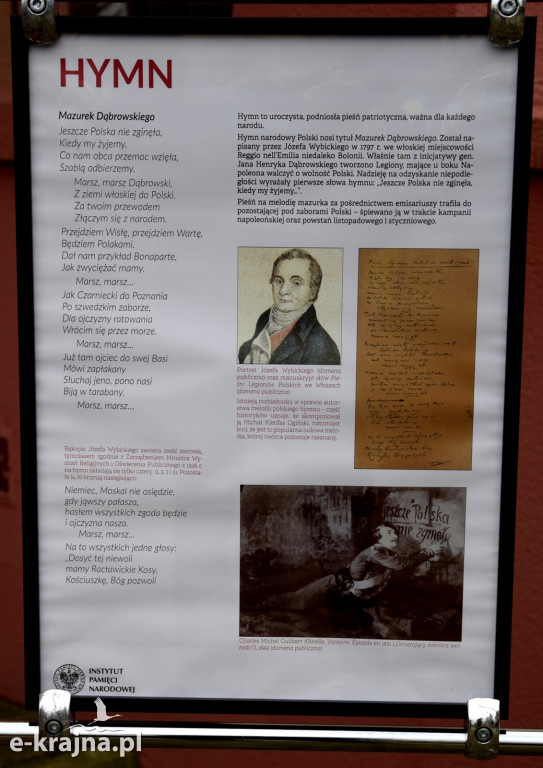 HYMN
Mazurek Dąbrowskiego
Jeszcze Polska nie zginęła,
Kiedy my żyjemy.
Co nam obca przemoc wzięła,
Szablą odbierzemy.
Marsz, marsz Dąbrowski,
Z ziemi włoskiej do Polski.
Za twoim przewodem
Złączym się z narodem.
Przejdziem Wisłę, przejdziem Wartę,
Będziem Polakami.
Dał nam przykład Bonaparte,
Jak zwyciężać mamy.
Marsz, marsz...
Jak Czarniecki do Poznania
Po szwedzkim zaborze,
Dla ojczyzny ratowania
Wrócim się przez morze.
Marsz, marsz...
Już tam ojciec do swej Basi
Mówi zapłakany
Słuchaj jeno, pono nasi
Biją w tarabany.
Marsz, marsz...
Rękopis Józefa Wybickiego zawiera sześć zwrotek,
tymczasem zgodnie z Zarządzeniem Ministra Wy-
znań Religijnych i Oświecenia Publicznego z 1926 r.
na hymn składają się tylko cztery
Niemiec, Moskal nie osiędzie,
gdy jąwszy pałasza,
hasłem wszystkich zgoda będzie
i ojczyzna nasza.
Marsz, marsz...
Na to wszystkich jedne głosy:
„Dosyć tej niewoli
mamy Racławickie Kosy,
Kościuszkę, Bóg pozwoli
INSTYTUT
PAMIĘCI
NARODOWEJ
Hymn to uroczysta, podniosła pieśń patriotyczna, ważna dla każdego
narodu.
Hymn narodowy Polski nosi tytuł Mazurek Dąbrowskiego. Został na-
pisany przez Józefa Wybickiego w 1797 r. we włoskiej miejscowości
Reggio nell'Emilia niedaleko Bolonii. Właśnie tam z inicjatywy gen.
Jana Henryka Dąbrowskiego tworzono Legiony, mające u boku Na-
poleona walczyć o wolność Polski. Nadzieję na odzyskanie niepodle-
głości wyrażały pierwsze słowa hymnu: „Jeszcze Polska nie zginęła,
kiedy my żyjemy...".
Pieśń na melodię mazurka za pośrednictwem emisariuszy trafiła do
pozostającej pod zaborami Polski – śpiewano ją w trakcie kampanii
napoleońskiej oraz powstań listopadowego i styczniowego.
Portret Józefa Wybickiego (domena
publiczna) oraz manuskrypt słów Pie-
śni Legionów Polskich we Włoszech
(domena publiczna)
Istnieją rozbieżności w sprawie autor-
stwa melodii polskiego hymnu – część
historyków uznaje, że skomponował
ją Michał Kleofas Ogiński, natomiast
inni, że jest to popularna ludowa melo-
dia, której twórca pozostaje nieznany.
Jeszcze Polska
nie zginęła
e-krajna.pl